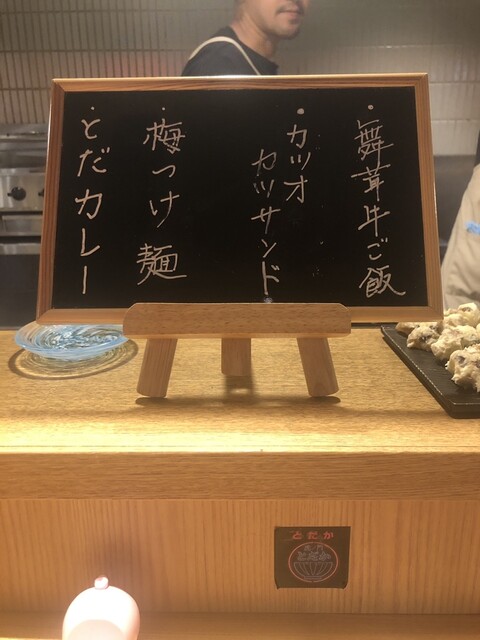 ・舞茸牛ご飯
・カツオ
カツサンド
・梅つけ麺
・とだカレー
とだか
とだか